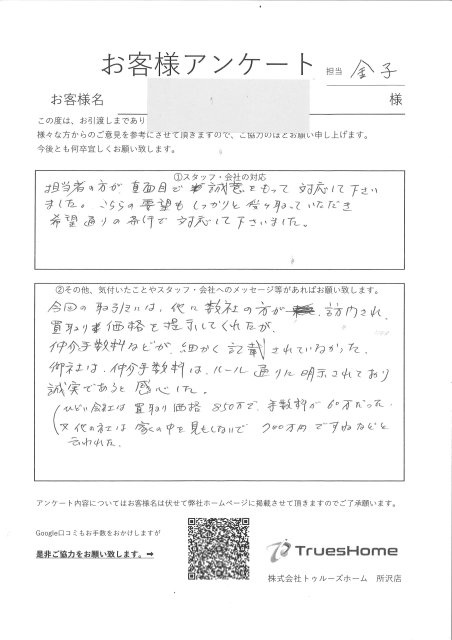 お客様アンケート 担当 金子
お客様名 様
この度は、お引渡しまであり
様々な方からのご意見を参考にさせて頂きますので、ご協力のほどお願い申し上げます。
今後とも何卒宜しくお願い致します。
①スタッフ・会社の対応
担当者の方が真面目で誠意をもって対応して下さい
ました。こちらの要望もしっかりと 取っていただき
希望通りの条件で対応して下さいました。
②その他、気付いたことやスタッフ・会社へのメッセージ等があればお願い致します。
今回の取引には、他に数社の方が 訪問され、
買取り価格を提示してくれたが、
仲介手数料などが、細かく記載されていなかった。
御社は、仲介手数料は、ルール通りに明示されており
誠実であると感心した。
(ひどい会社は買取り価格 850万で、手数料が60万だった。
又他の社は家の中を見もしないで 700万円ですねなどと
云われた。
アンケート内容についてはお客様名は伏せて弊社ホームページに掲載させて頂きますのでご了承願います。
Google口コミもお手数をおかけしますが
是非ご協力をお願い致します。➡
TruesHome
株式会社トゥルーズホーム 所沢店